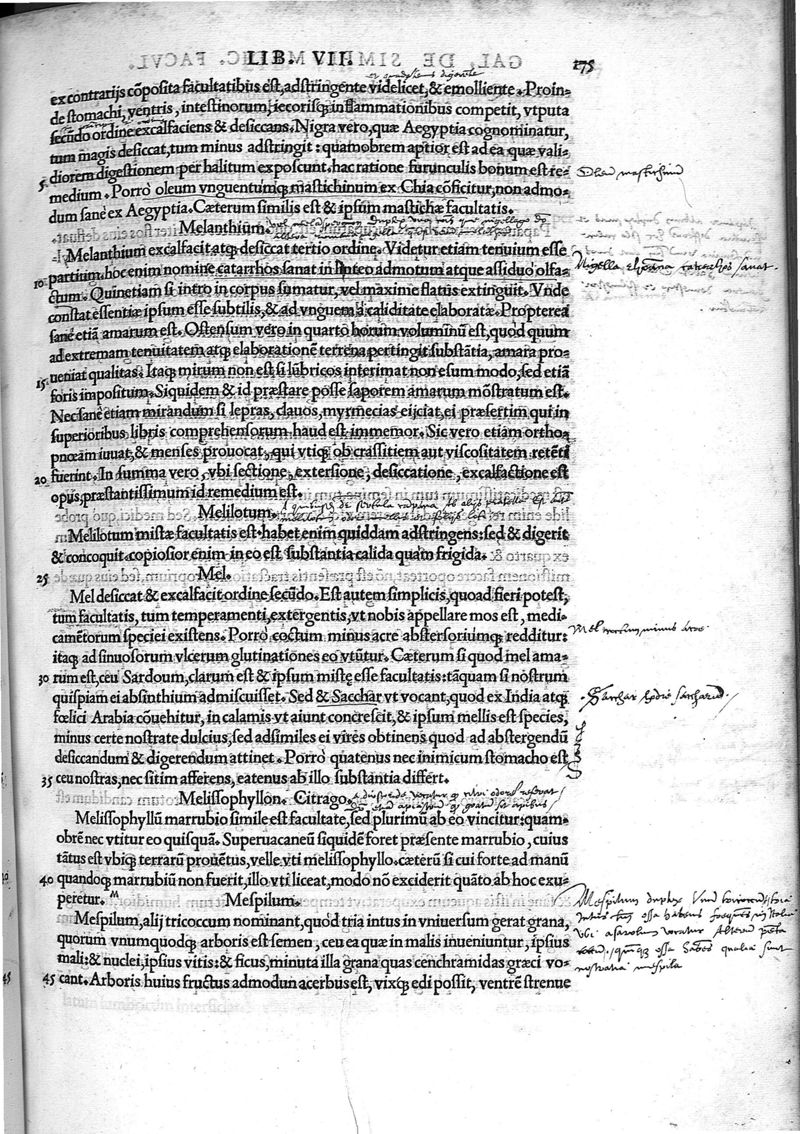 LIB. VII. 275
ex contrarijs cõposita facultatibus est, adstringente videlicet, & emolliente. Proin-
de stomachi, ventris, intestinorum, iecorisq; inflammationibus competit, vtputa
secũdo ordine excalfaciens & desiccans. Nigra vero, quæ Aegyptia cognominatur,
tum magis desiccat, tum minus adstringit: quamobrem aptior est ad ea quæ vali-
5 diorem digestionem per halitum exposcunt. hac ratione furunculis bonum est re-
medium. Porro oleum vnguentumq; mastichinum ex Chia cõficitur, non admo-
dum sane ex Aegyptia. Cæterum similis est & ipsum mastichæ facultatis.
Melanthium.
Melanthium excalfacit atq; desiccat tertio ordine. Videtur etiam tenuium esse
10 partium. hoc enim nomine catarrhos sanat in linteo admotum atque assiduo olfa-
ctum. Quinetiam si intro in corpus sumatur, vel maxime flatus extinguit. Vnde
constat essentiæ ipsum esse subtilis, & ad vnguem a caliditate elaboratæ. Propterea
sane etiã amarum est. Ostensum vero in quarto horum voluminũ est, quod quum
ad extremam tenuitatem atq; elaborationẽ terrena pertingit substãtia, amara pro-
15 ueniat qualitas. Itaq; mirum non est si lũbricos interimat non esum modo, sed etiã
foris impositum. Siquidem & id præstare posse saporem amarum mõstratum est.
Nec sane etiam mirandum si lepras, clauos, myrmecias eijciat, ei præsertim qui in
superioribus libris comprehensorum haud est immemor. Sic vero etiam ortho
pnœam iuuat, & menses prouocat, qui vtiq; ob crassitiem aut viscositatem retẽti
20 fuerint. In summa vero, vbi sectione, extersione, desiccatione, excalfactione est
opus, præstantissimum id remedium est.
Melilotum.
Melilotum mistæ facultatis est. habet enim quiddam adstringens: sed & digerit
& concoquit. copiosior enim in eo est substantia calida quam frigida.
25 Mel.
Mel desiccat & excalfacit ordine secũdo. Est autem simplicis, quoad fieri potest,
tum facultatis, tum temperamenti, extergentis, vt nobis appellare mos est, medi-
camẽtorum speciei existens. Porro coctum minus acre abstersoriumq; redditur:
itaq; ad sinuosorum vlcerum glutinationes eo vtũtur. Cæterum si quod mel ama-
30 rum est, ceu Sardoum, clarum est & ipsum mistę esse facultatis: tãquam si nostrum
quispiam ei absinthium admiscuisset. Sed & Sacchar vt vocant, quod ex India atq;
fœlici Arabia cõuehitur, in calamis vt aiunt concrescit, & ipsum mellis est species,
minus certe nostrate dulcius, sed adsimiles ei vires obtinens quod ad abstergendũ
desiccandum & digerendum attinet. Porro quatenus nec inimicum stomacho est
35 ceu nostras, nec sitim afferens, eatenus ab illo substantia differt.
Melissophyllon. Citrago.
Melissophyllũ marrubio simile est facultate, sed plurimũ ab eo vincitur: quam-
obrẽ nec vtitur eo quisquã. Superuacaneũ siquidẽ foret præsente marrubio, cuius
tãtus est vbiq; terrarũ prouẽtus, velle vti melissophyllo. cæterũ si cui forte ad manũ
40 quandoq; marrubiũ non fuerit, illo vti liceat, modo nõ exciderit quãto ab hoc exu-
peretur. Mespilum.
Mespilum, alij tricoccum nominant, quod tria intus in vniuersum gerat grana,
quorum vnumquodq; arboris est semen, ceu ea quæ in malis inueniuntur, ipsius
mali: & nuclei, ipsius vitis: & ficus, minuta illa grana quas cenchramidas græci vo-
45 cant. Arboris huius fructus admodum acerbus est, vixq; edi possit, ventrẽ strenue